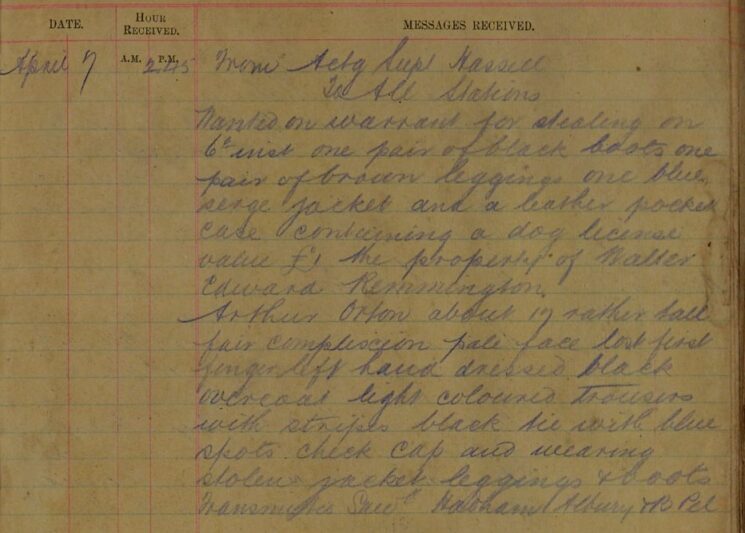 DATE.
HOUR
RECEIVED.
MESSAGES RECEIVED.
A.M. P.M.
April 7 2.45 From Actg Supt Hassell
To All Stations
Wanted on warrant for stealing on
6th inst one pair of black boots one
pair of brown leggings one blue
serge jacket and a leather pocket
case containing a dog license
value £1 the property of Walter
Edward Remmington.
Arthur Orton about 17 rather tall
fair complexion pale face lost first
finger left hand dressed black
overcoat light coloured trousers
with stripes black tie with blue
spots check cap and wearing
stolen jacket leggings & boots
Albury